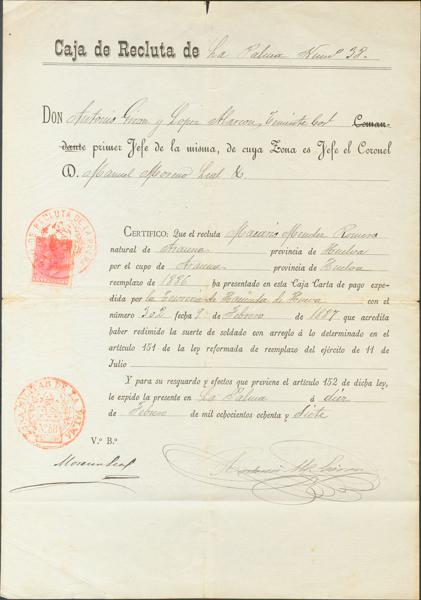 Caja de Recluta de La Palma Numº 38.
DON Antonio Giron y Lopez Alarcon, Teniente Corl Coman-
dante primer Jefe de la misma, de cuya Zona es Jefe el Coronel
D. Manuel Moreno Leal &
CERTIFICO: Que el recluta Macario Mendez Romero
natural de Aracena provincia de Huelva
por el cupo de Aracena provincia de Huelva
reemplazo de 1886 ha presentado en esta Caja Carta de pago
expedida por la Tesorería de Hacienda de Huelva con el
número 302 fecha 9 de Febrero de 1887 que acredita
haber redimido la suerte de soldado con arreglo á lo determinado en el
artículo 151 de la ley reformada de reemplazo del ejército de 11 de
Julio
Y para su resguardo y efectos que previene el artículo 152 de dicha ley,
le expido la presente en La Palma á diez
de Febrero de mil ochocientos ochenta y Siete
V.º B.º
Moreno Leal
DE RECLUTA DE LA PALMA